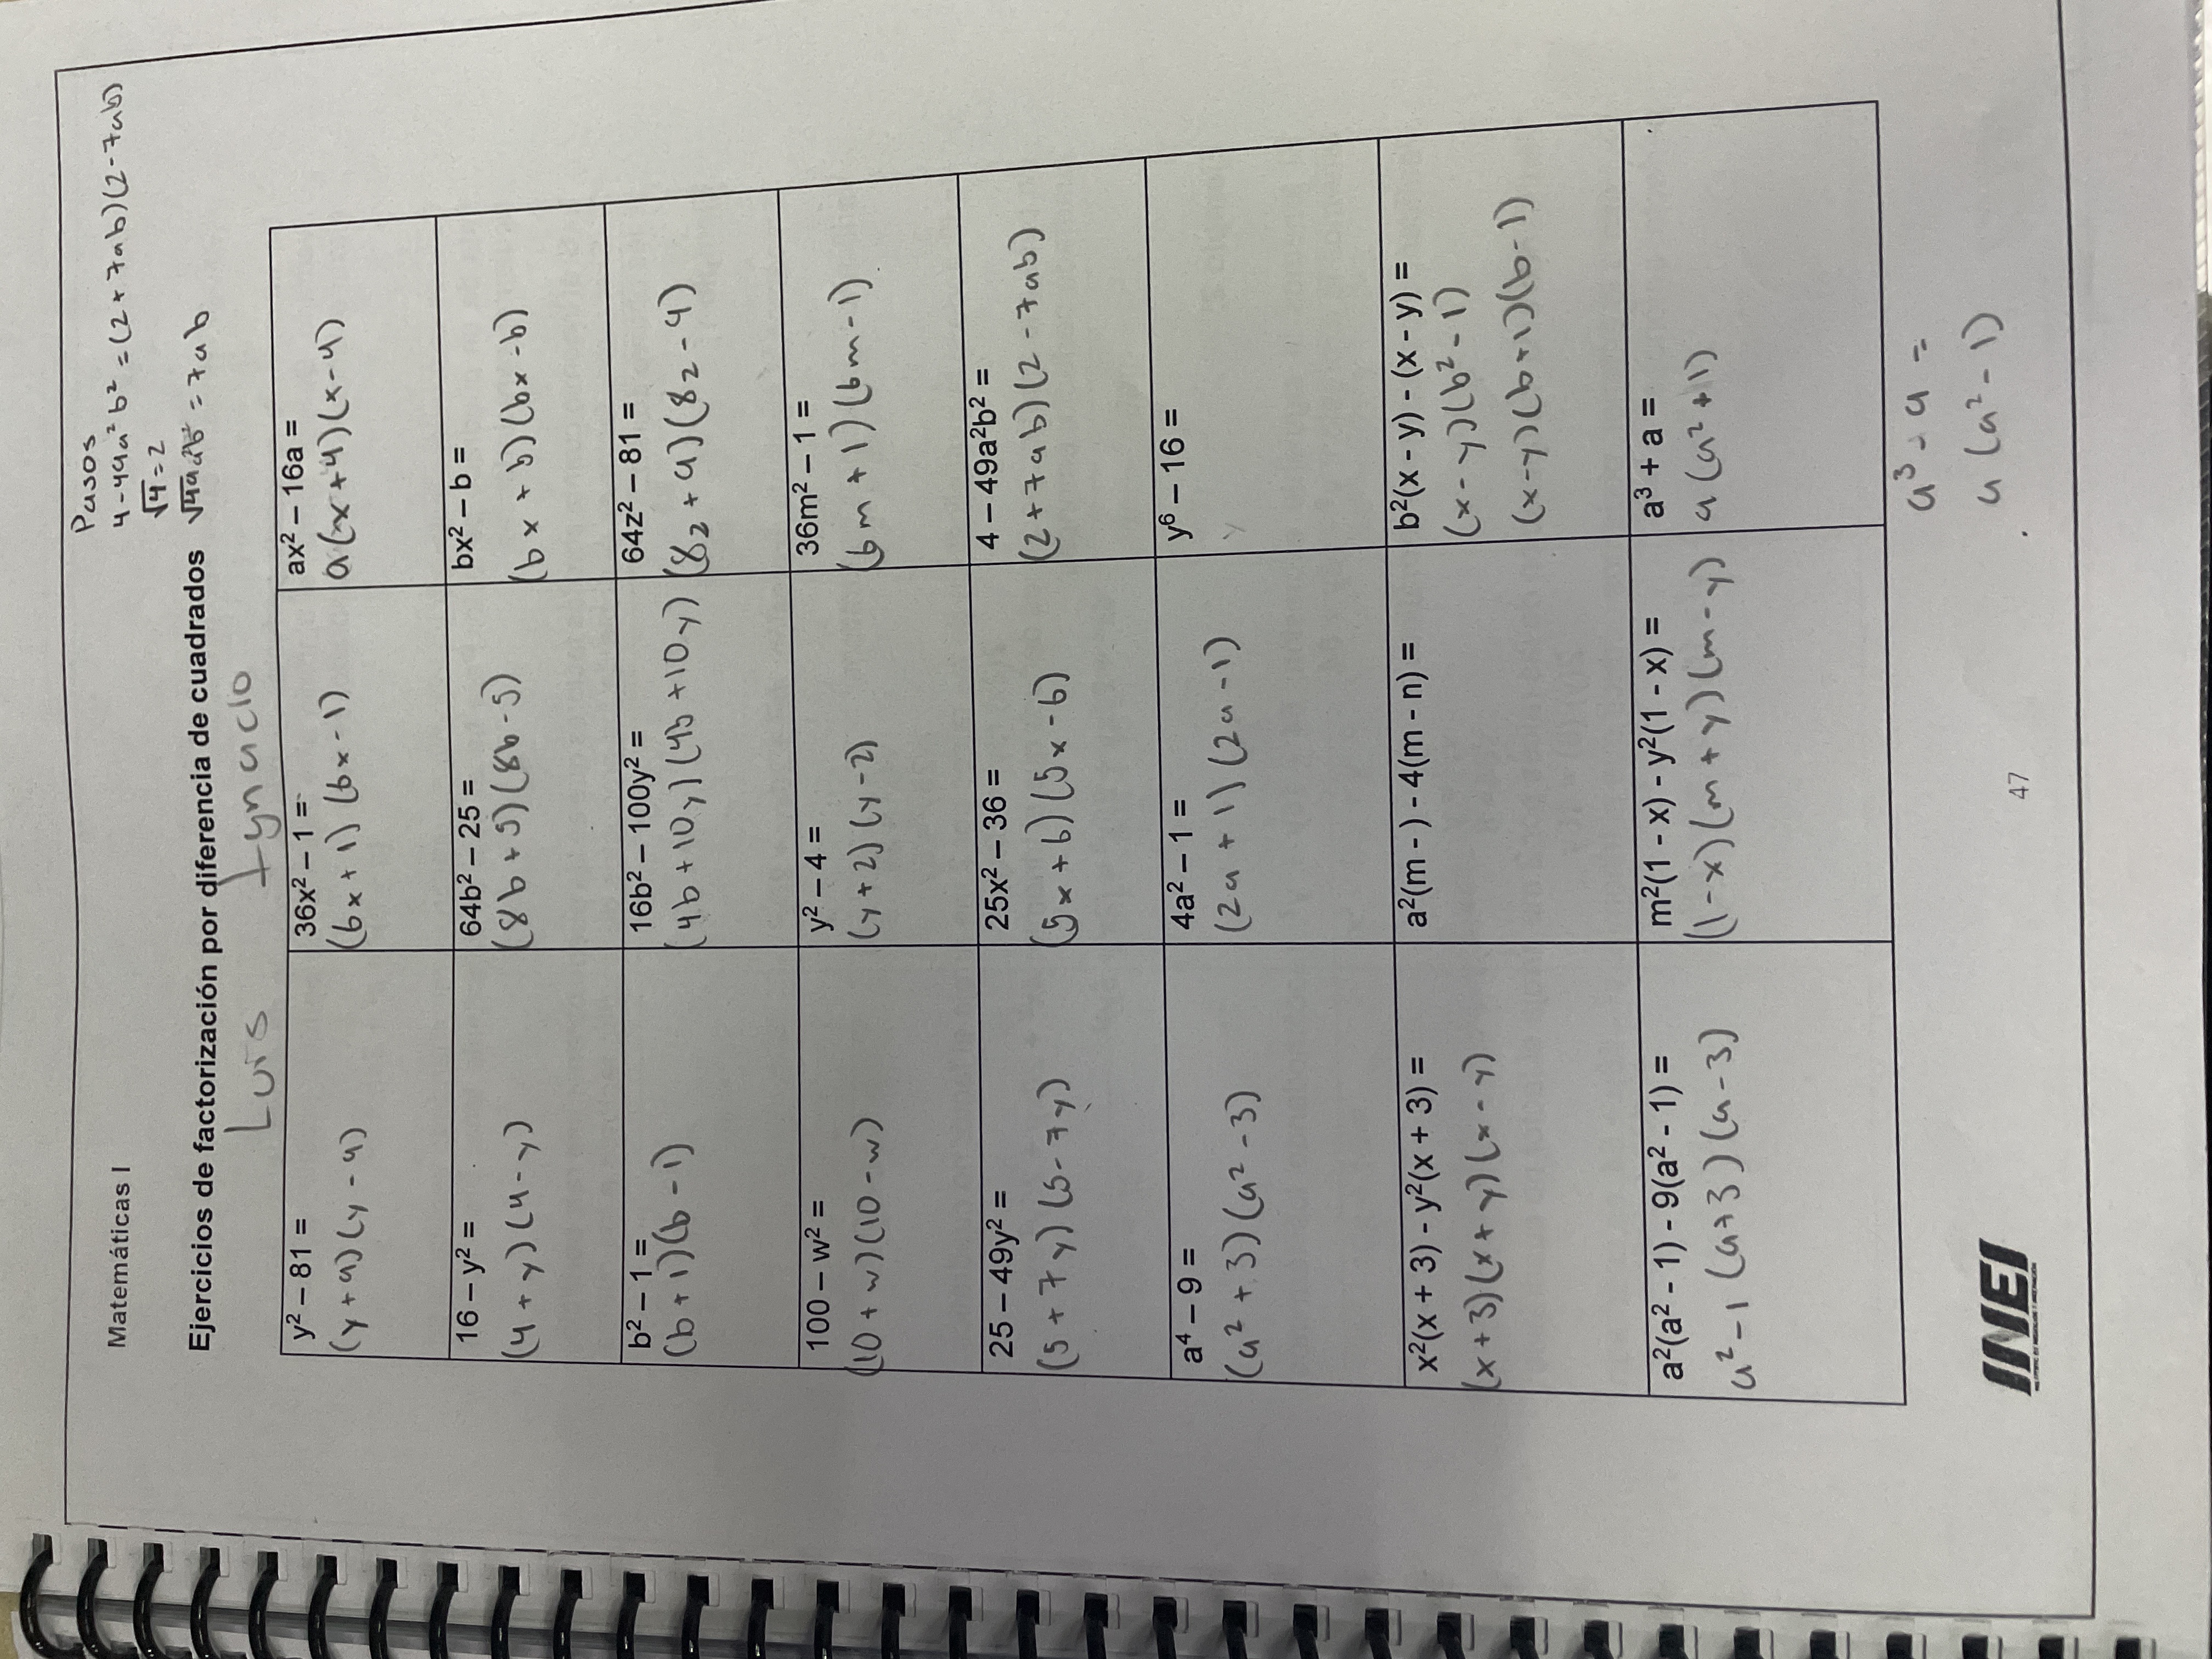 Matemáticas I
Pasos
4-49a²b² = (2+7ab)(2-7ab)
√4=2
√49a²b² = 7ab
Ejercicios de factorización por diferencia de cuadrados
Luis Ignacio
y² – 81 =
(y+9)(y-9)
36x² – 1 =
(6x+1)(6x-1)
ax² – 16a =
a(x+4)(x-4)
16 – y² =
(4+y)(4-y)
64b² – 25 =
(8b+5)(8b-5)
bx² – b =
(bx+b)(bx-b)
b² – 1 =
(b+1)(b-1)
16b² – 100y² =
(4b+10y)(4b+10y)
64z² – 81 =
(8z+9)(8z-9)
100 – w² =
(10+w)(10-w)
y² – 4 =
(y+2)(y-2)
36m² – 1 =
(6m+1)(6m-1)
25 – 49y² =
(5+7y)(5-7y)
25x² – 36 =
(5x+6)(5x-6)
4 – 49a²b² =
(2+7ab)(2-7ab)
a⁴ – 9 =
(a²+3)(a²-3)
4a² – 1 =
(2a+1)(2a-1)
y⁶ – 16 =
x²(x + 3) - y²(x + 3) =
(x+3)(x+y)(x-y)
a²(m - ) - 4(m - n) =
b²(x - y) - (x - y) =
(x-y)(b²-1)
(x-y)(b+1)(b-1)
a²(a² - 1) - 9(a² - 1) =
a²-1(a+3)(a-3)
m²(1 - x) - y²(1 - x) =
(1-x)(m+y)(m-y)
a³ + a =
a(a²+1)
a³-a =
a(a²-1)
INEI
47